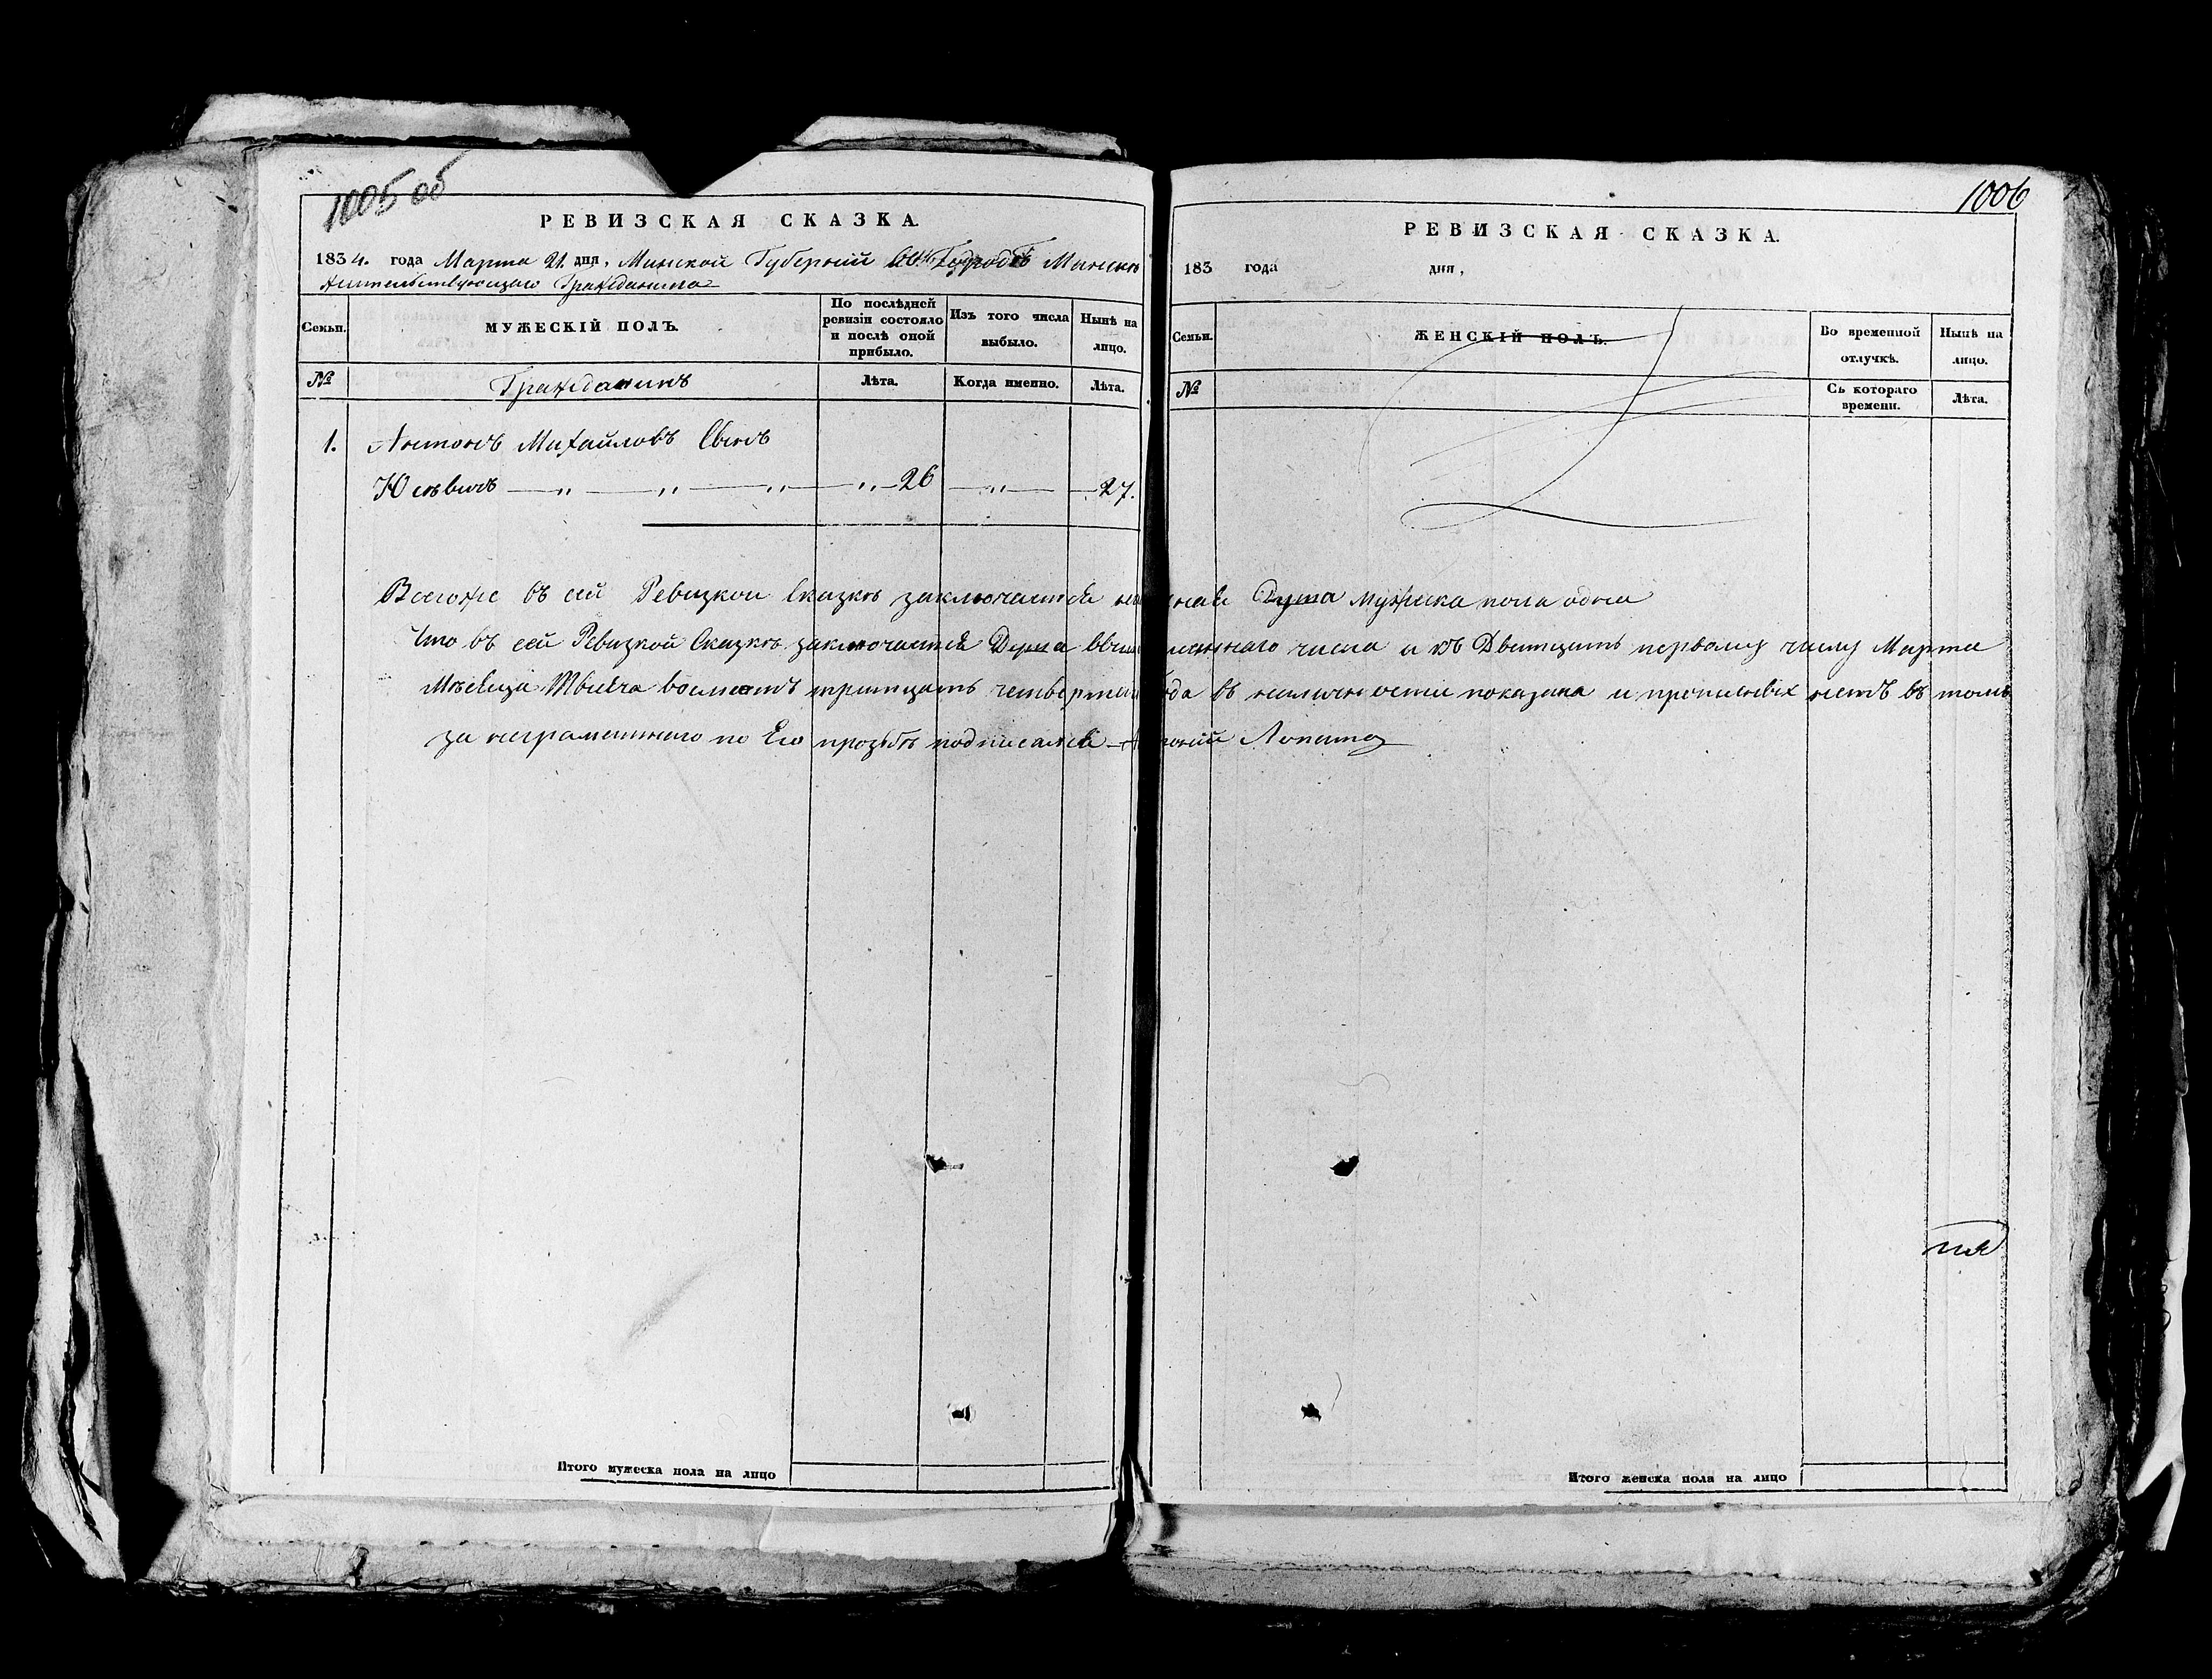 1005 об
РЕВИЗСКАЯ СКАЗКА.
1834. года Марта 21. дня, Минской Губерніи Городѣ Минскѣ
Жительствующаго Гражданина
Семьи.
МУЖЕСКІЙ ПОЛЪ.
По послѣдней ревизіи состояло и послѣ оной прибыло.
Изъ того числа выбыло.
Нынѣ на лицо.
№
Гражданинъ
Лѣта.
Когда именно.
Лѣта.
1. Антонъ Михайловъ Сынъ
26 27.
Итого мужеска пола на лицо
1006
РЕВИЗСКАЯ СКАЗКА.
183 года дня,
Семьи.
ЖЕНСКІЙ ПОЛЪ.
Во временной отлучкѣ.
Нынѣ на лицо.
№
Съ котораго времени.
Лѣта.
Всегоже въ сей Ревизкой Сказкѣ заключается Душа мужеска пола одна
что въ сей Ревизкой Сказкѣ заключается Душа числа и къ Двятцать первому числу Марта
Мѣсяца Тысяча восмсотъ тритцать четвертаго года въ наличности показана и прописныхъ нетъ въ томъ
за неграмотнаго по Его прозьбѣ подписался Антоній Лопата
Итого женска пола на лицо